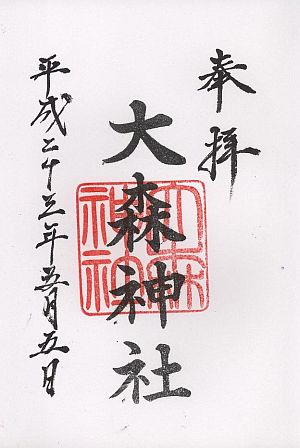 奉拝
大森神社
大森神社
平成二十三年五月五日